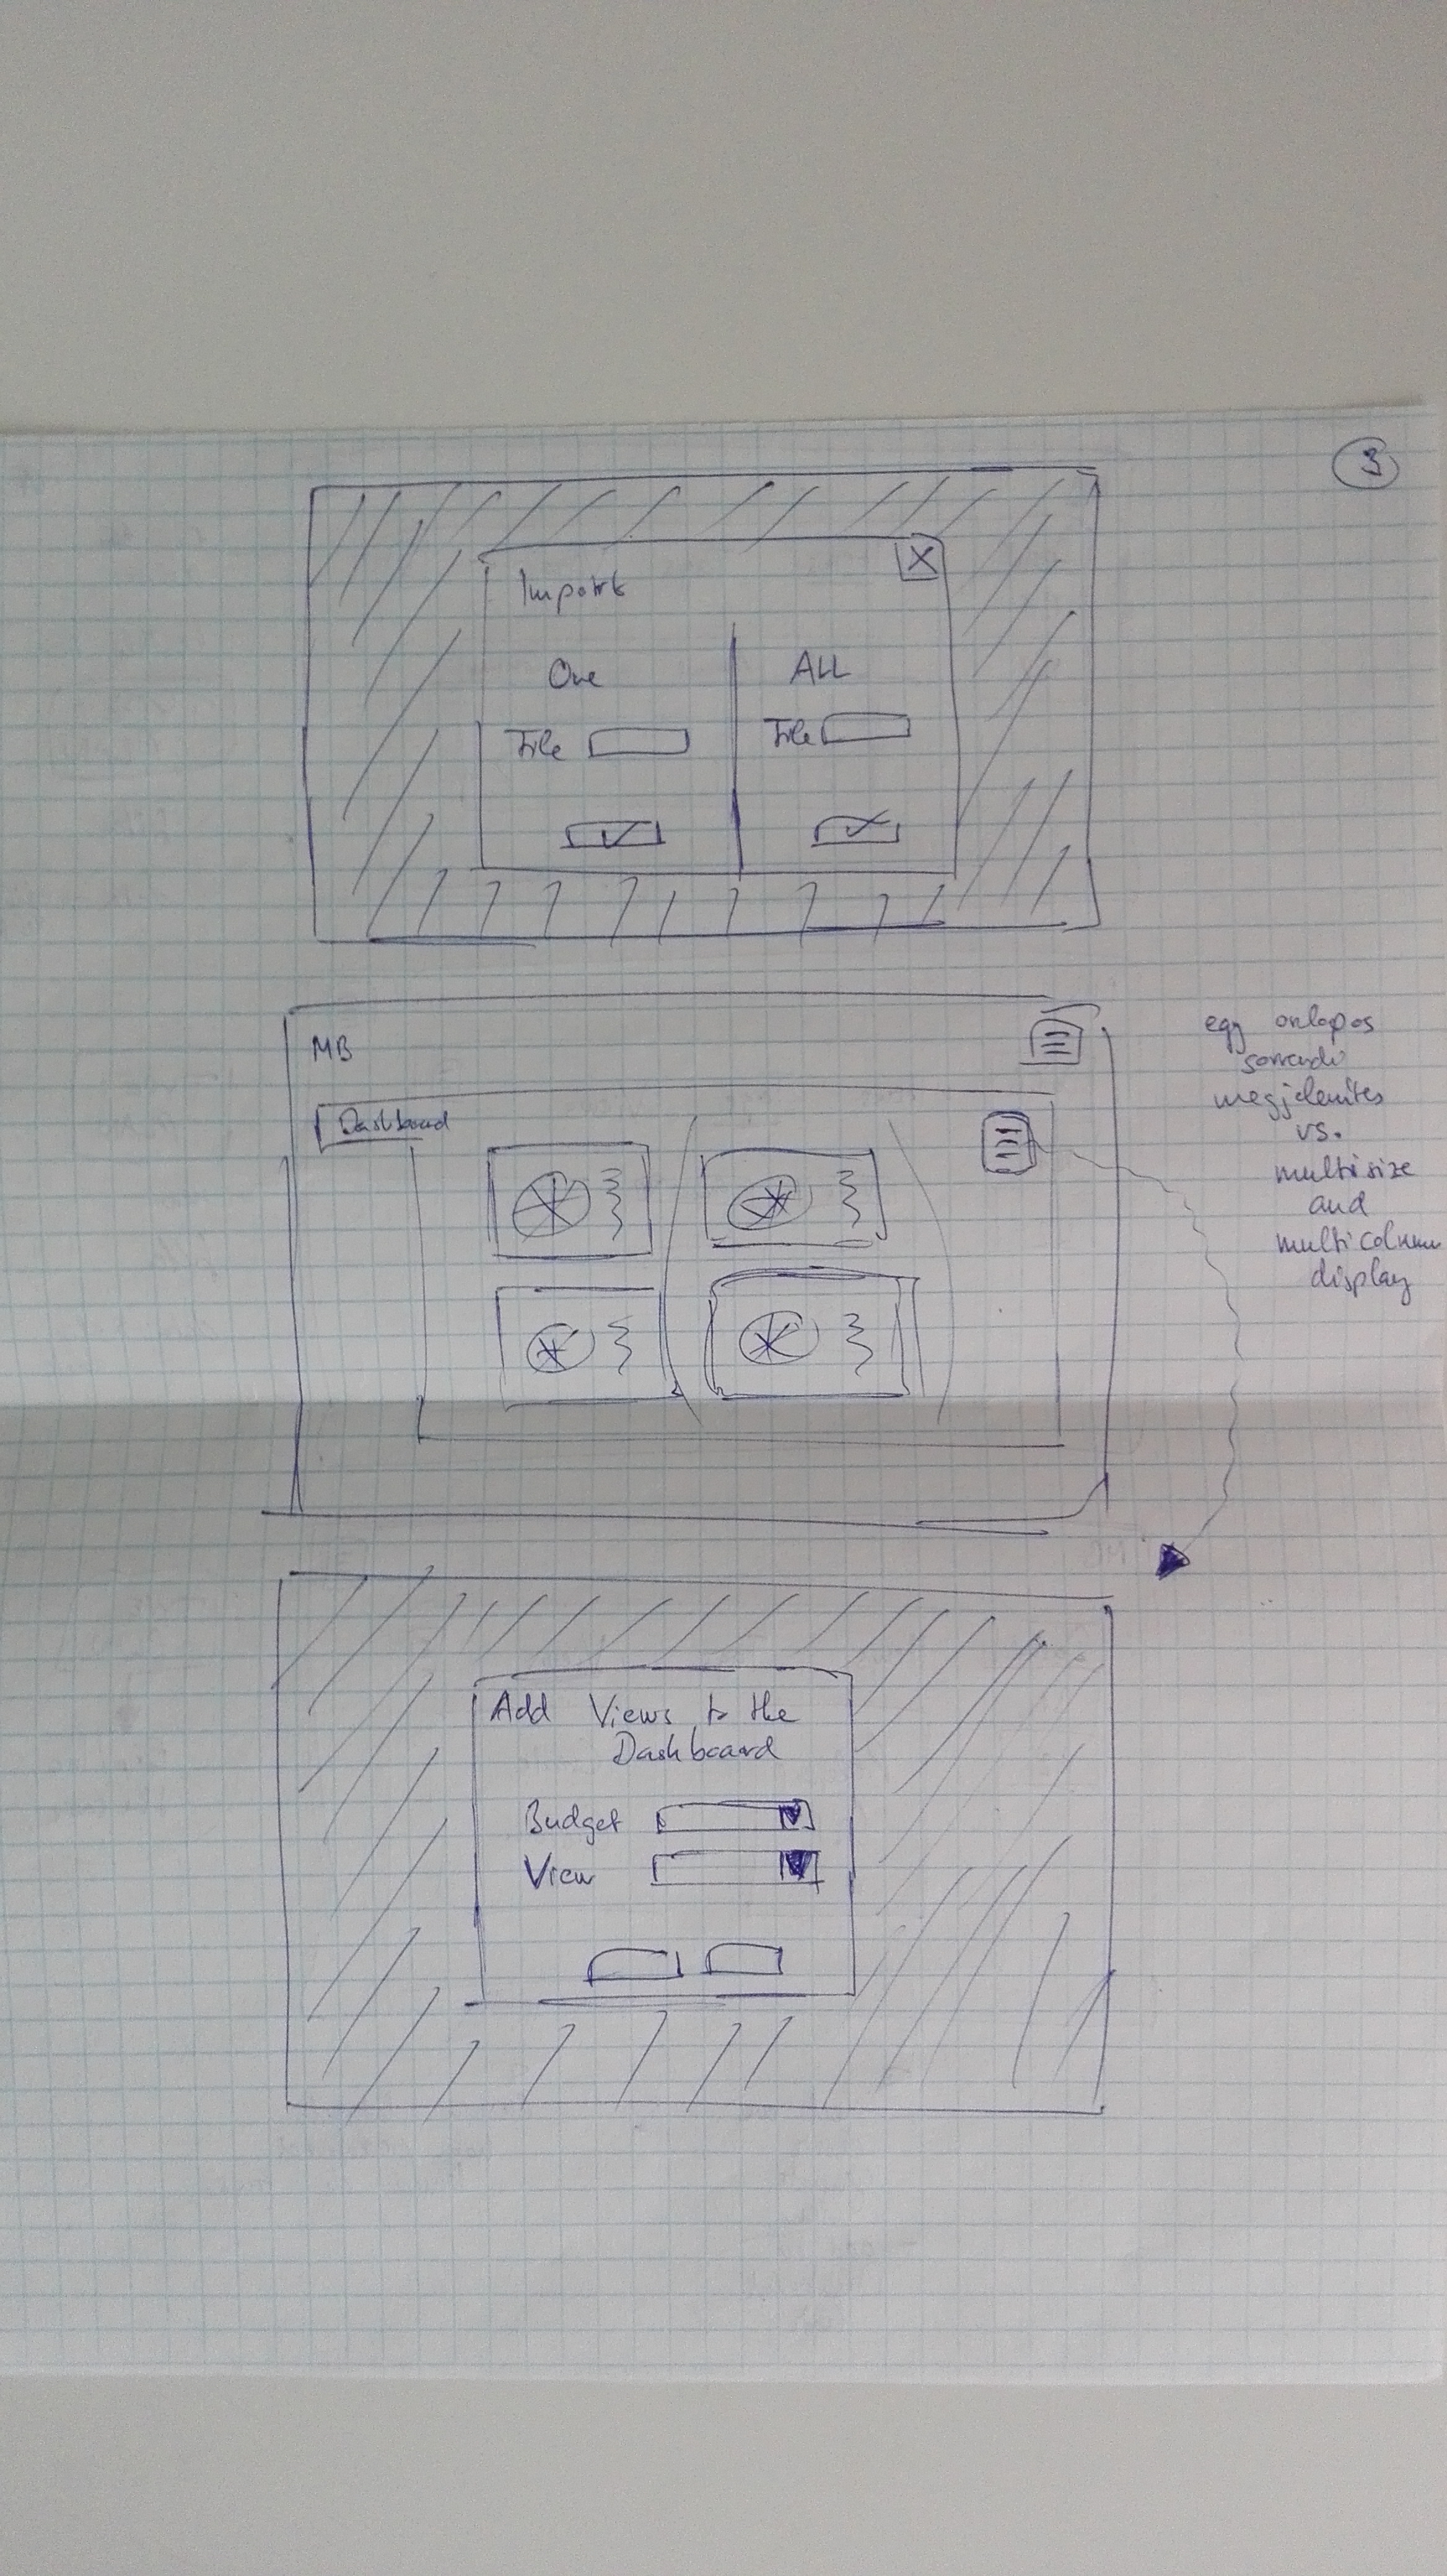 3
X
Imports
One
ALL
File
File
MB
Dashboard
egy oszlopos
megjelenites
vs.
multisize
and
multicolumn
display
Add Views to the
Dashboard
Budget
View